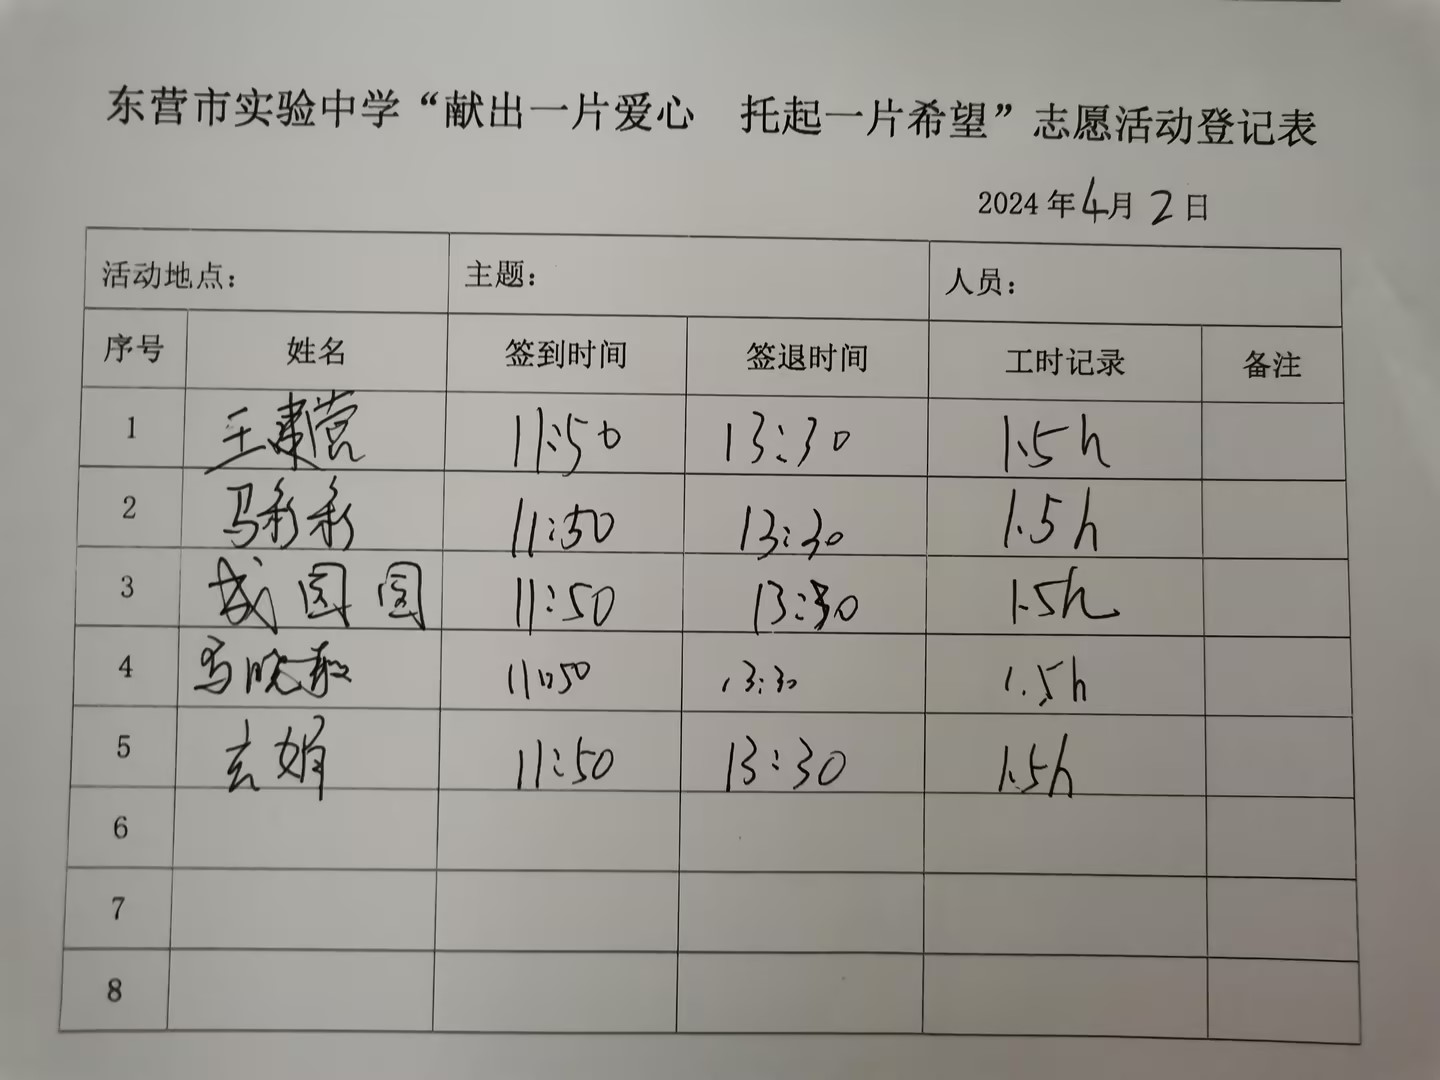 东营市实验中学“献出一片爱心 托起一片希望”志愿活动登记表
2024 年 4月 2 日
活动地点： 主题： 人员：
序号 姓名 签到时间 签退时间 工时记录 备注
1 王建营 11:50 13:30 1.5h
2 马彩彩 11:50 13:30 1.5h
3 成园园 11:50 13:30 1.5h
4 马晓敏 11:50 13:30 1.5h
5 玄娟 11:50 13:30 1.5h
6
7
8